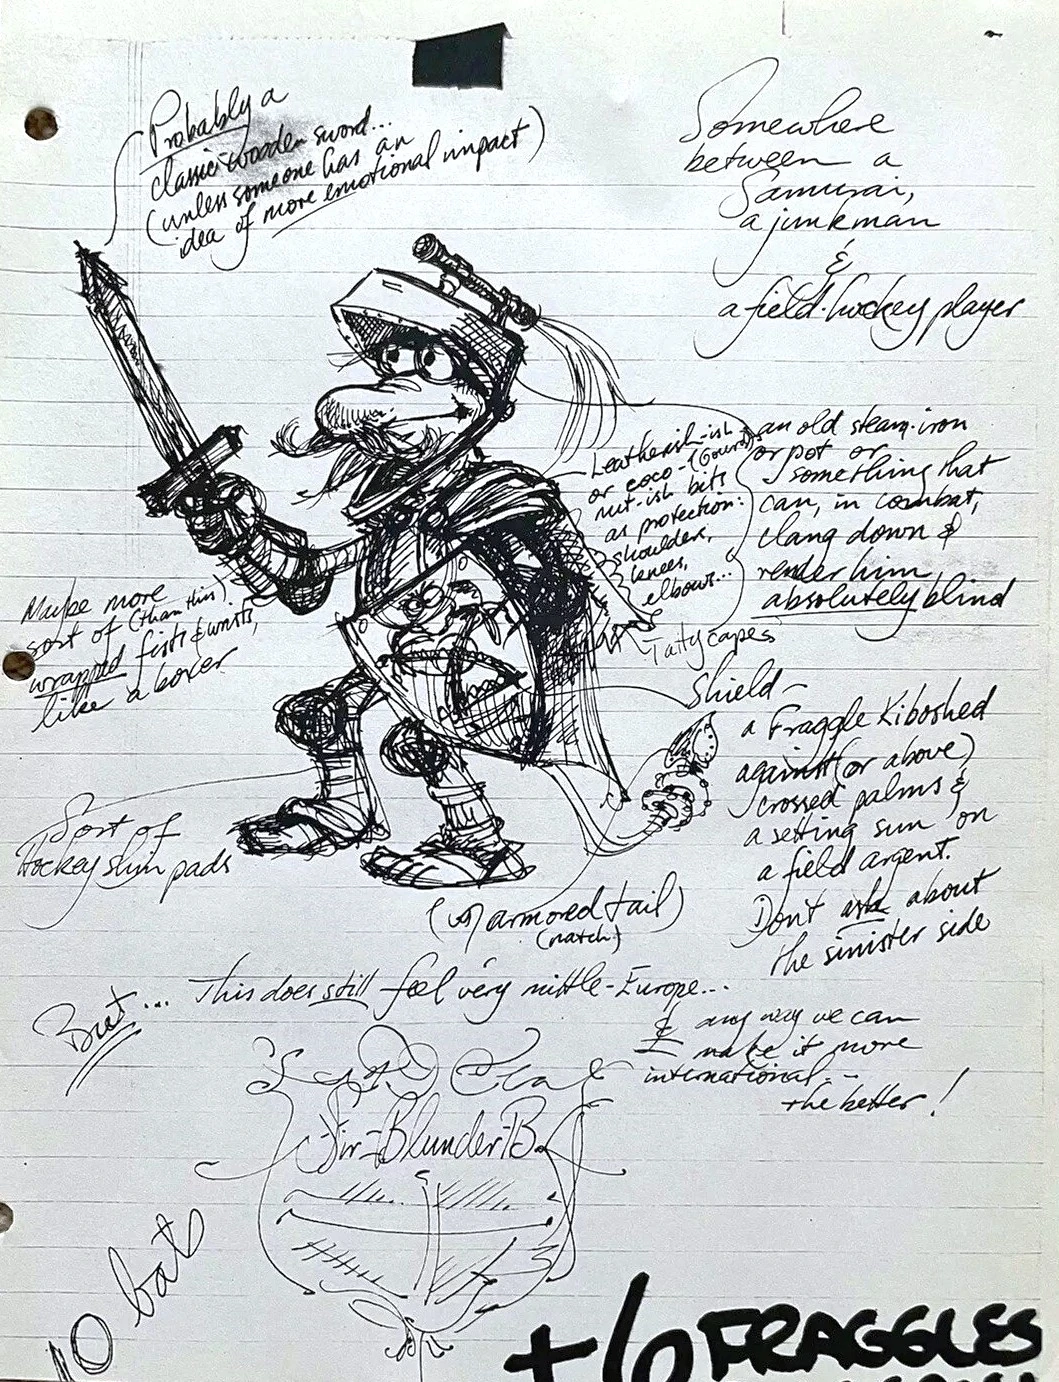 Probably a
classic wooden sword...
(unless someone has an
idea of more emotional impact)
Somewhere
between a
Samurai,
a junkman
&
a field-hockey player
Leatherish-ish
or coco-(Gourd)
nut-ish bits
as protection:
shoulders,
knees,
elbows...
an old steam-iron
or pot or
something that
can, in combat,
clang down &
render him
absolutely blind
Maybe more
sort of (than this)
wrapped fists & wrists,
like a boxer
Tatty capes
Shield-
a Fraggle Kiboshed
against (or above)
crossed palms &
a setting sun on
a field argent.
Don't ask about
the sinister side
Sort of
Hockey shin pads
armored tail)
(natch)
But... This does still feel very mittle-Europe...
& any way we can
make it more
international--
the better!
Sir-Blunder-B
10 bats
+6 FRAGGLES